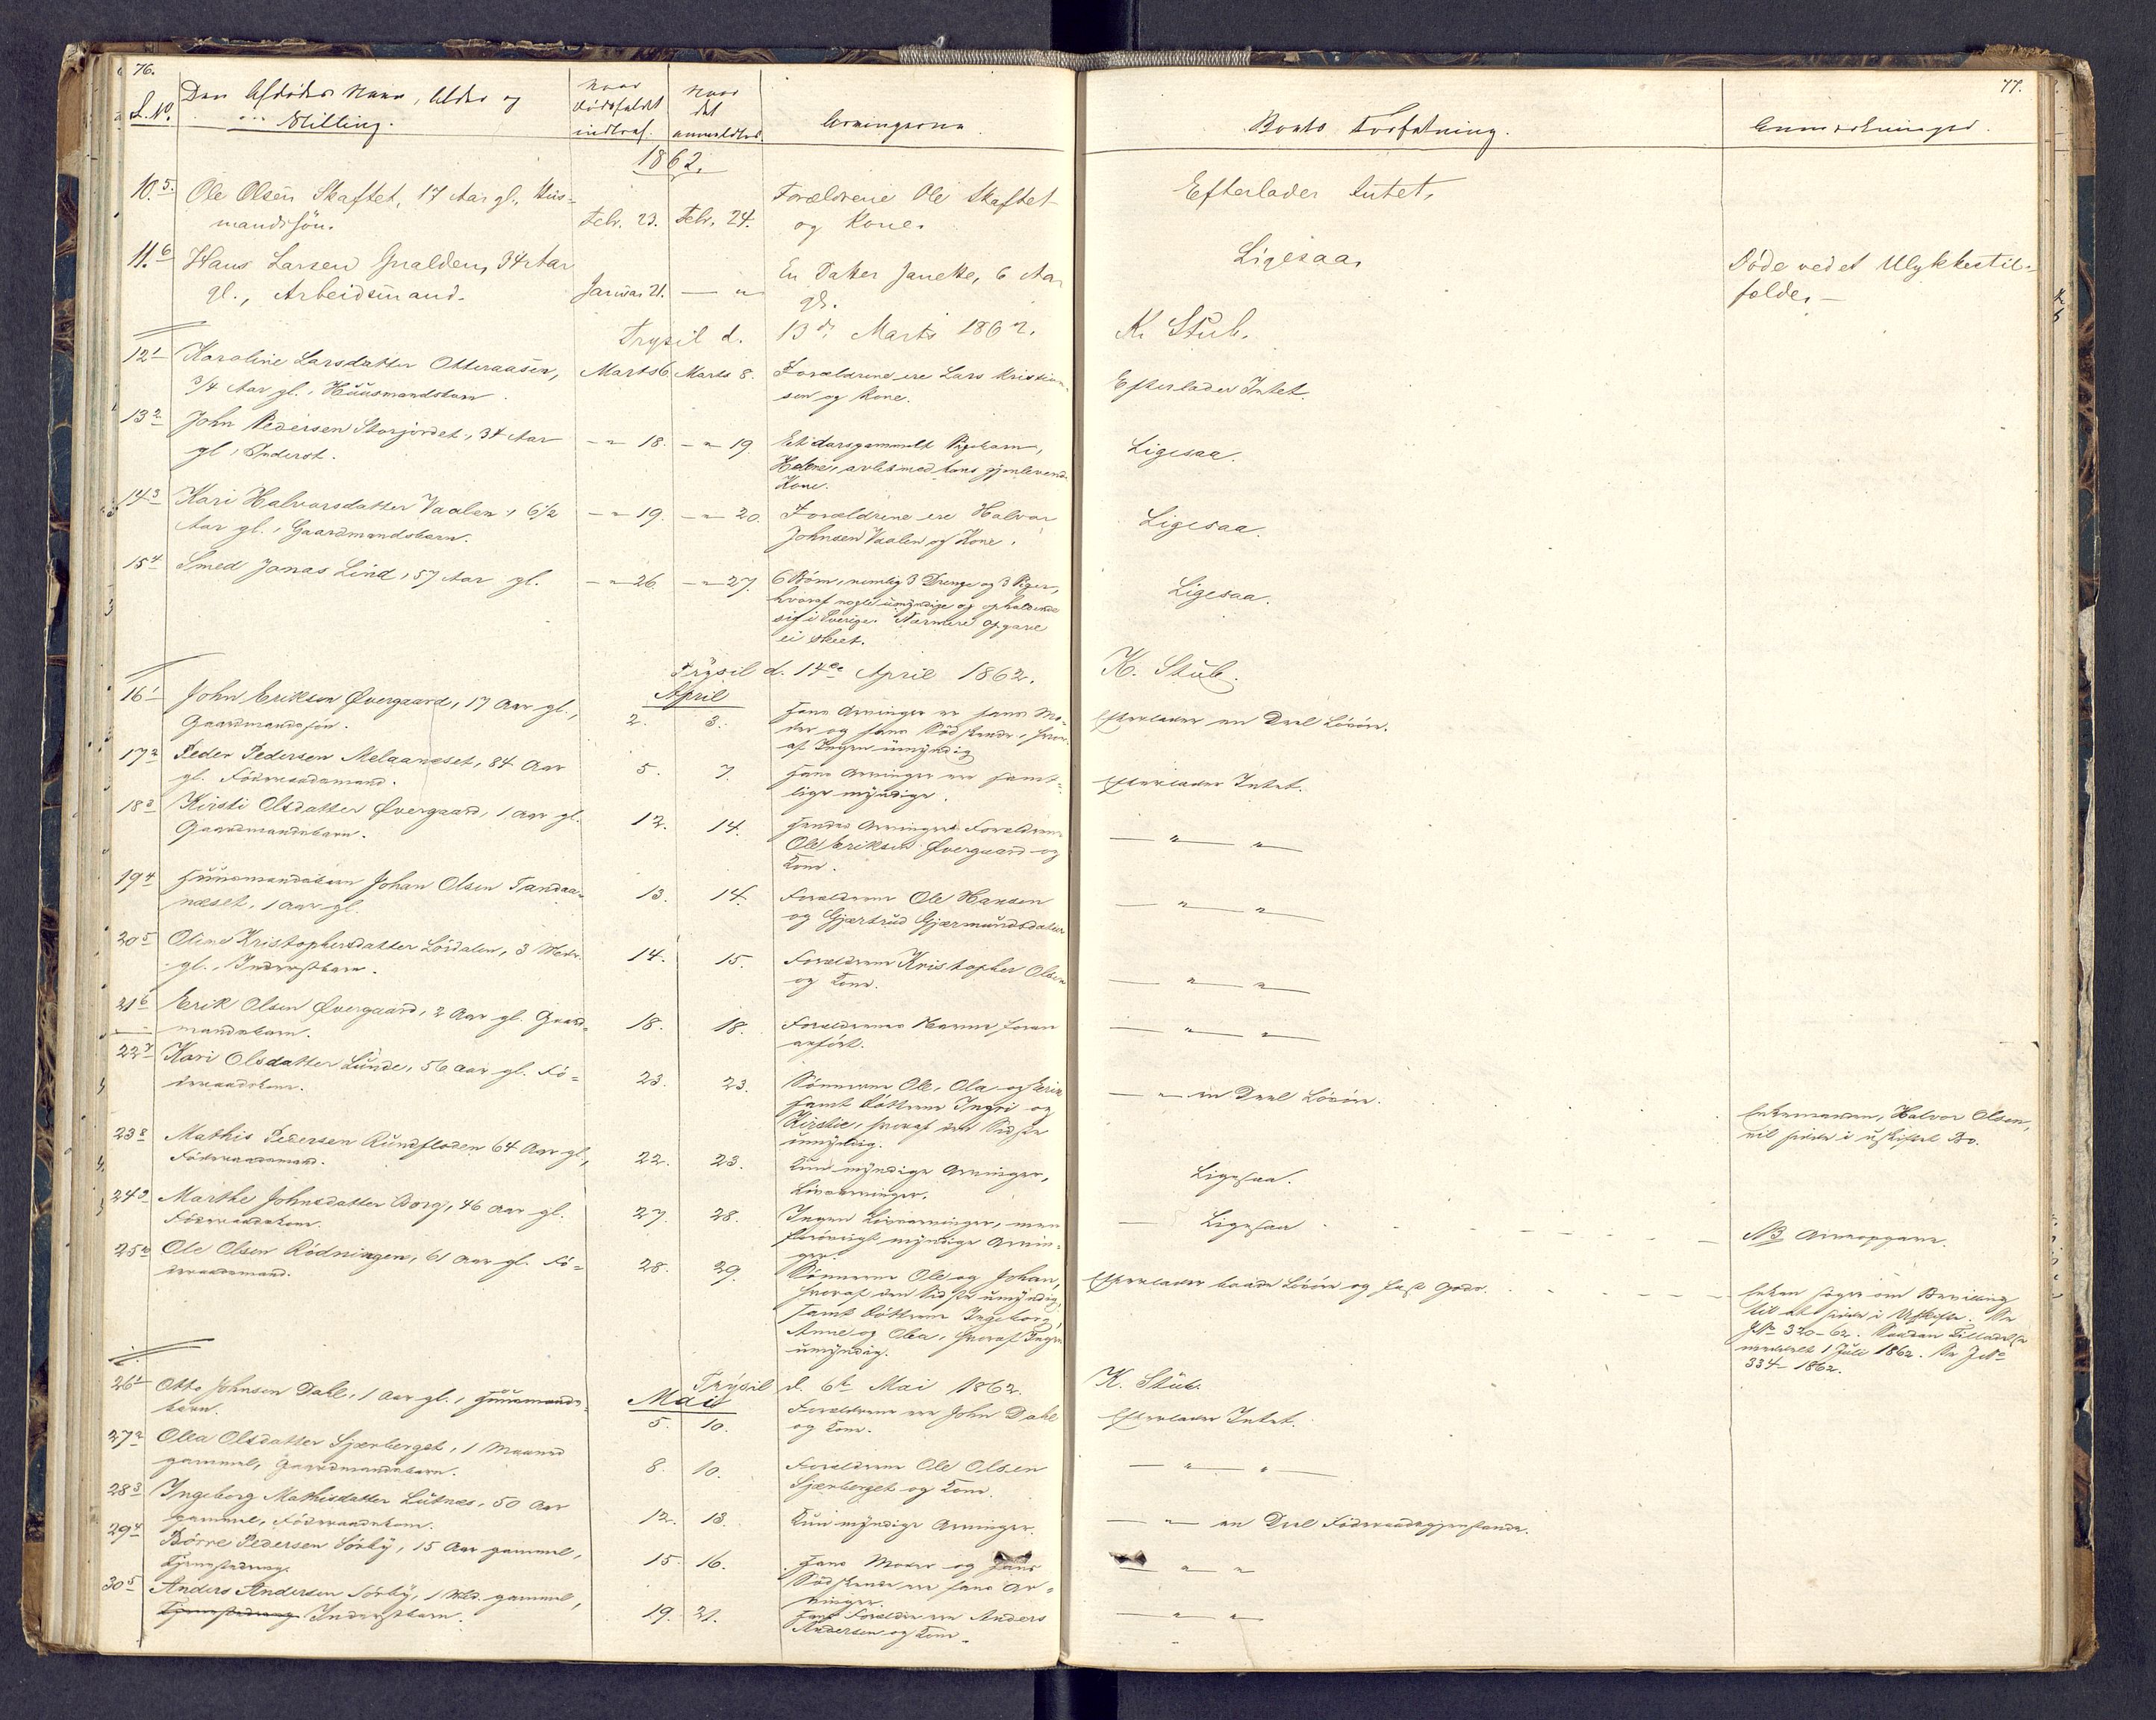 76.
L. No.
Den Afdødes Navn, Alder og
Stilling.
Naar
Dødsfaldet
indtraf.
Naar
det
anmeldtes.
Arvingerne.
1862.
10.5. Ole Olsen Skaftet, 17 Aar gl., Huus-
mandssön.
Febr. 23. Febr. 24.
Forældrene Ole Skaftet
og Kone.
11.6 Hans Larsen 34 Aar
gl., Arbeidsmand.
Januar 21. — "
En Datter Janette, 6 Aar
gl.
Trysil d. 13de Marts 1862.
12 1 Karoline Larsdatter Otteraasen,
3/4 Aar gl., Huusmandsbarn.
Marts 6. Marts 8.
Forældrene ere Lars Kristian-
sen og Kone.
13 2 John Pedersen Storjordet, 34 Aar
gl., Inderst.
— " 18. — " 19.
Et Aarsgammelt Pigebarn,
Helene, avlet med hans gjenlevende
Kone.
14 3 Kari Halvorsdatter Vaalen, 6 1/2
Aar gl., Gaardmandsbarn.
— " 19. — " 20.
Forældrene ere Halvor
Johnsen Vaalen og Kone.
15 4 Smed Jonas Lind, 57 Aar gl.
— " 26. — " 27.
6 Børn, nemlig 3 Drenge og 3 Piger,
hvoraf nogle umyndige og opholdende
sig i Sverige. Nærmere Opgave
ei skeet.
Trysil d. 14de April 1862.
April
16 1 John Eriksen Øvergaard, 17 Aar gl.,
Gaardmandssön.
2. 3.
Hans Arvinger er hans Mo-
der og hans Sødskende, hvor-
af Ingen umyndig
17 2 Peder Pedersen Melaaneset, 84 Aar
gl. Föderaadsmand.
5. 7.
Hans Arvinger ere samt-
lige myndige.
18 3 Kirsti Olsdatter Øvergaard, 1 Aar gl.
Gaardmandsbarn.
12. 14.
Hendes Arvinger Forældrene
Ole Eriksen Øvergaard og
Kone.
19 4 Huusmandsbarn Johan Olsen Tandaa-
næset, 1 Aar gl.
13. 14.
Forældrene Ole Hansen
og Gjærtrud Gjærmundsdatter
20 5 Oline Kristophersdatter Lördalen, 3 Mdr.
gl., Inderstbarn.
14. 15.
Forældrene Kristopher Olsen
og Kone.
21 6 Erik Olsen Øvergaard, 2 Aar gl. Gaard-
mandsbarn.
18. 18.
Forældrenes Navne foran
anført.
22 7 Kari Olsdatter Lunde, 56 Aar gl. Fö-
deraadskone.
23. 23.
Sönnerne Ole, Ola og Erik
samt Döttrene Ingri og
Kirstie, hvoraf den Sidste
umyndig.
23 8 Mathis Pedersen Rundfloden 64 Aar gl.,
Föderaadsmand.
22. 23.
Kun myndige Arvinger,
Livsarvinger.
24 9 Marthe Johnsdatter Borg, 46 Aar gl.
Föderaadskone.
27. 28.
Ingen Livsarvinger, men
forövrigt myndige Arvin-
ger.
25 10 Ole Olsen Rödningen, 61 Aar gl. Fö-
deraadsmand.
28. 29.
Sönnerne Ole og Johan,
hvoraf den Sidste umyndig,
samt Döttrene Ingeborg,
Anne og Olea, hvoraf Ingen
umyndig.
Trysil d. 6te Mai 1862.
Mai
26 1 Otto Johnsen Dahl, 1 Aar gl., Huusmands-
barn.
5. 10.
Forældrene ere John Dahl
og Kone.
27 2 Olea Olsdatter Sjærberget, 1 Maaned
gammel, Gaardmandsbarn.
8. 10.
Forældrene Ole Olsen
Sjærberget og Kone.
28 3 Ingeborg Mathisdatter Lutnæs, 50 Aar
gammel, Föderaadskone.
12. 13.
Kun myndige Arvinger.
29 4 Börre Pedersen Sörby, 15 Aar gammel,
Tjenestedreng.
15. 16.
Hans Moder og hans
Sødskende ere hans Ar-
vinger.
30 5 Anders Andersen Sörby, 1 Md. gammel,
Tjenestedreng Inderstbarn.
19. 21.
Hans Forældre ere Anders
Andersen og Kone.
77.
Boets Forfatning.
Anmærkninger.
Efterlader Intet.
Ligesaa.
Døde ved et Ulykkestil-
fælde.
K. Stub.
Efterlader Intet.
Ligesaa.
Ligesaa.
Ligesaa.
K. Stub.
Efterlader en Deel Lösöre.
Efterlader Intet.
— " — "
— " — "
— " — "
— " — "
— " en Deel Lösöre.
Enkemanden, Halvor Olsen,
vil sidde i uskiftet Bo.
Ligesaa.
— Ligesaa
NB Arveopgave.
Efterlader baade Lösöre og fast Gods.
Enken søger om Bevilling
til at sidde i Uskifte. Se
J.No 320-62. Saadan Tilladelse
meddelt 1 Juli 1862. Se J.No
334-1862.
K. Stub.
Efterlader Intet.
— " — "
— " — en Deel Föderaadsgjenstande.
— " "
— " — "